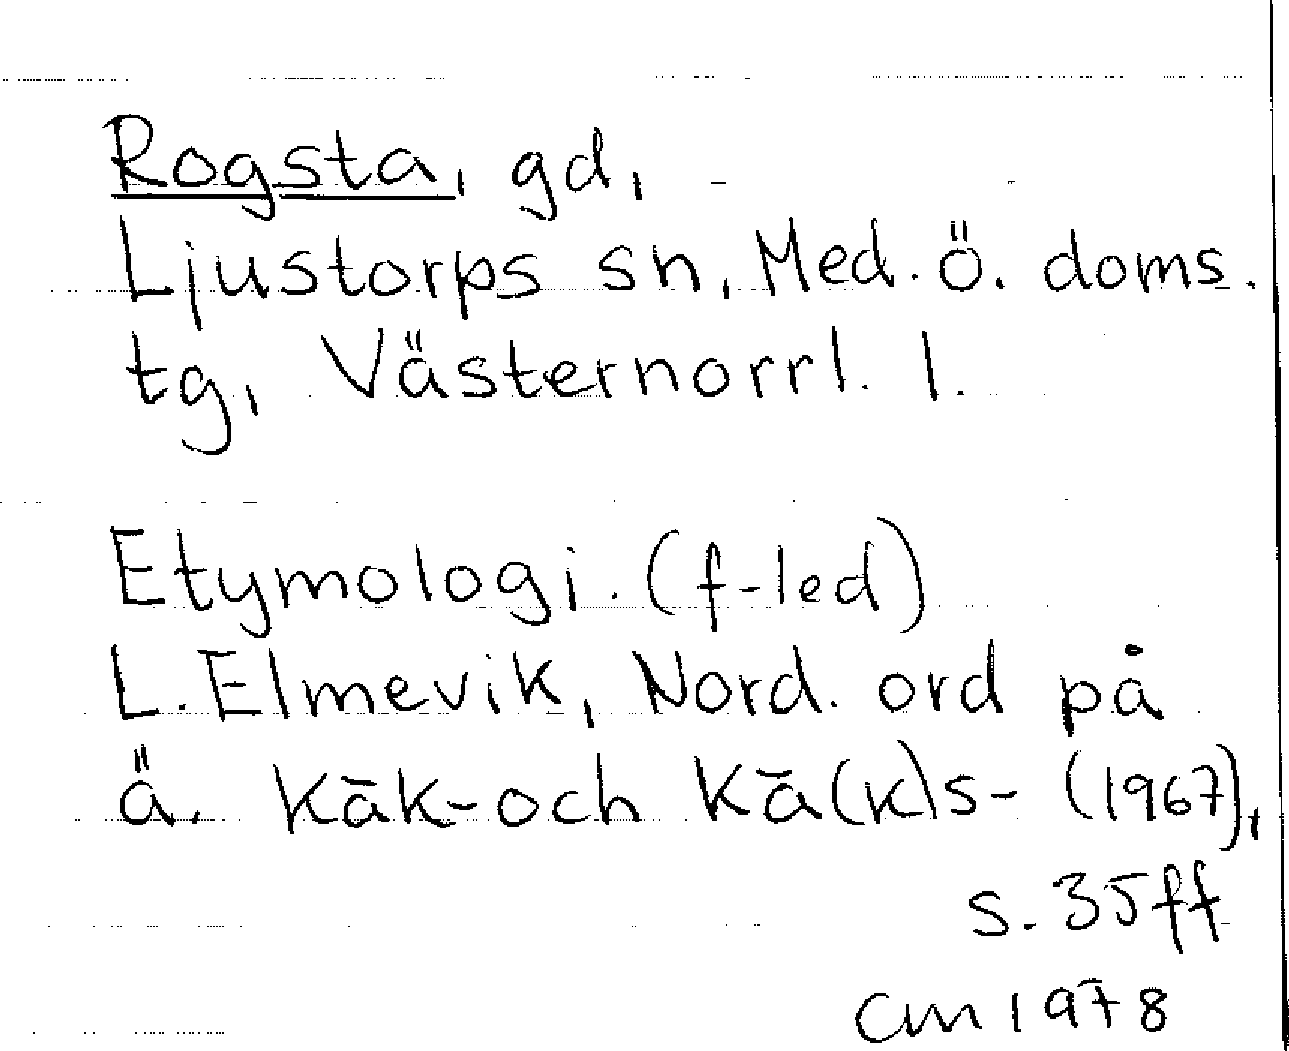 Rogsta, gd,
Ljustorps sn, Med. ö. doms.
tg, Västernorrl. l.
Etymologi. (f-led)
L. Elmevik, Nord. ord på
ä. kāk- och kā(k)s- (1967),
s. 35 ff
CM 1978